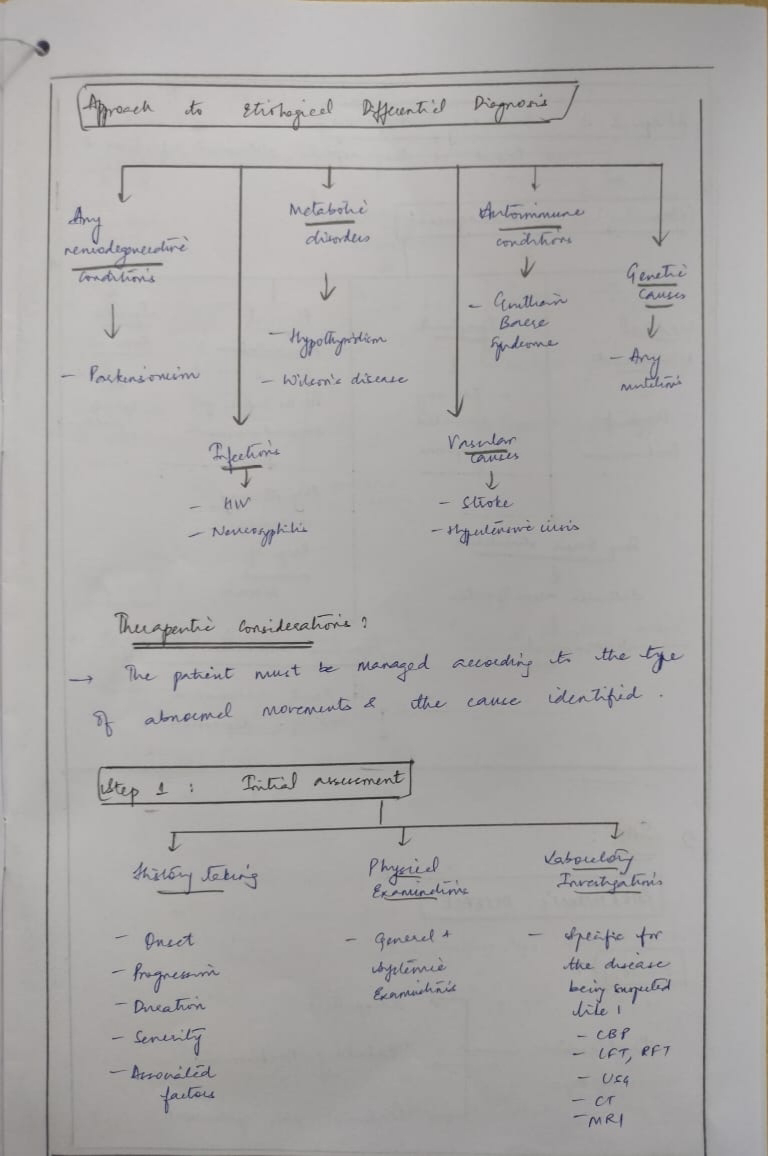 Approach to Etiological Differential Diagnosis
Any
neurodegenerative
conditions
- Parkensonism
Infections
- HIV
- Neurosyphilis
Metabolic
disorders
- Hypothyroidism
- Wilson's disease
Vascular
causes
- Stroke
- Hypertensive crisis
Autoimmune
conditions
- Guillain
Barre
Syndrome
Genetic
causes
- Any
mutations
Therapeutic Considerations :
→ The patient must be managed according to the type
of abnormal movements & the cause identified.
Step 1 : Initial assessment
History taking
- Onset
- Progression
- Duration
- Severity
- Associated
factors
Physical
Examinations
- General +
systemic
Examinations
Laboratory
Investigations
- Specific for
the disease
being suspected
like
- CBP
- LFT, RFT
- USG
- CT
- MRI